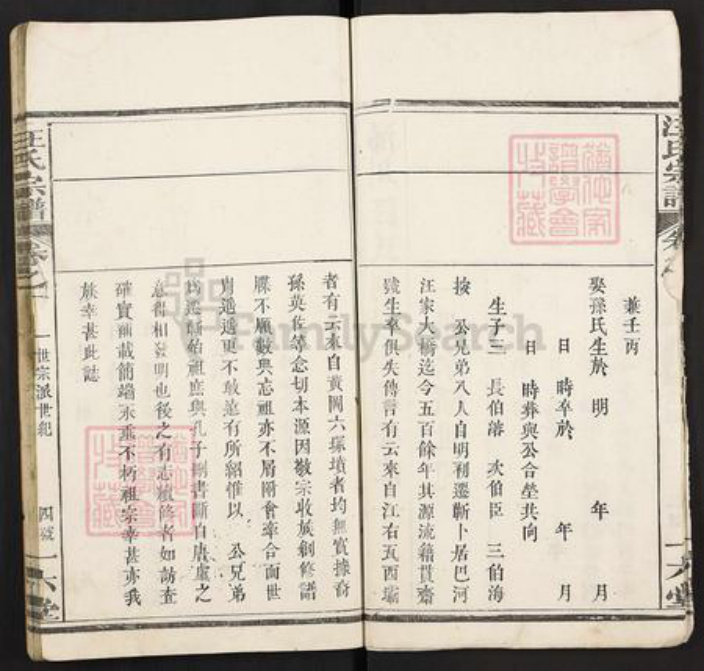 汪氏宗譜
六堂
兼壬丙
娶孫氏生於 明 年 月
日 時卒於 年 月
日 時葬與公合塋共向
生子三 長伯藩 次伯臣 三伯海
按 公兄弟八人自明初遷蘄卜居巴河
汪家大橋迄今五百餘年其源流籍貫齋
生卒俱失傳言有云來自江右瓦西壩
者有云來自黃岡六塚墳者均無實據裔
孫英佐等念切本源因敬宗收族創修譜
牒不願數典忘祖亦不屑附會牽合而世
遠更不敢 有所紹惟以 公兄弟
為遷蘄始祖庶與孔子刪書斷自唐虞之
意得相發明也後之有志續修者如訪查
確實補載簡端永垂不朽祖宗幸甚亦我
族幸甚此誌
汪氏宗譜 卷之一 一世宗派世紀 四號 一六堂
FamilySearch